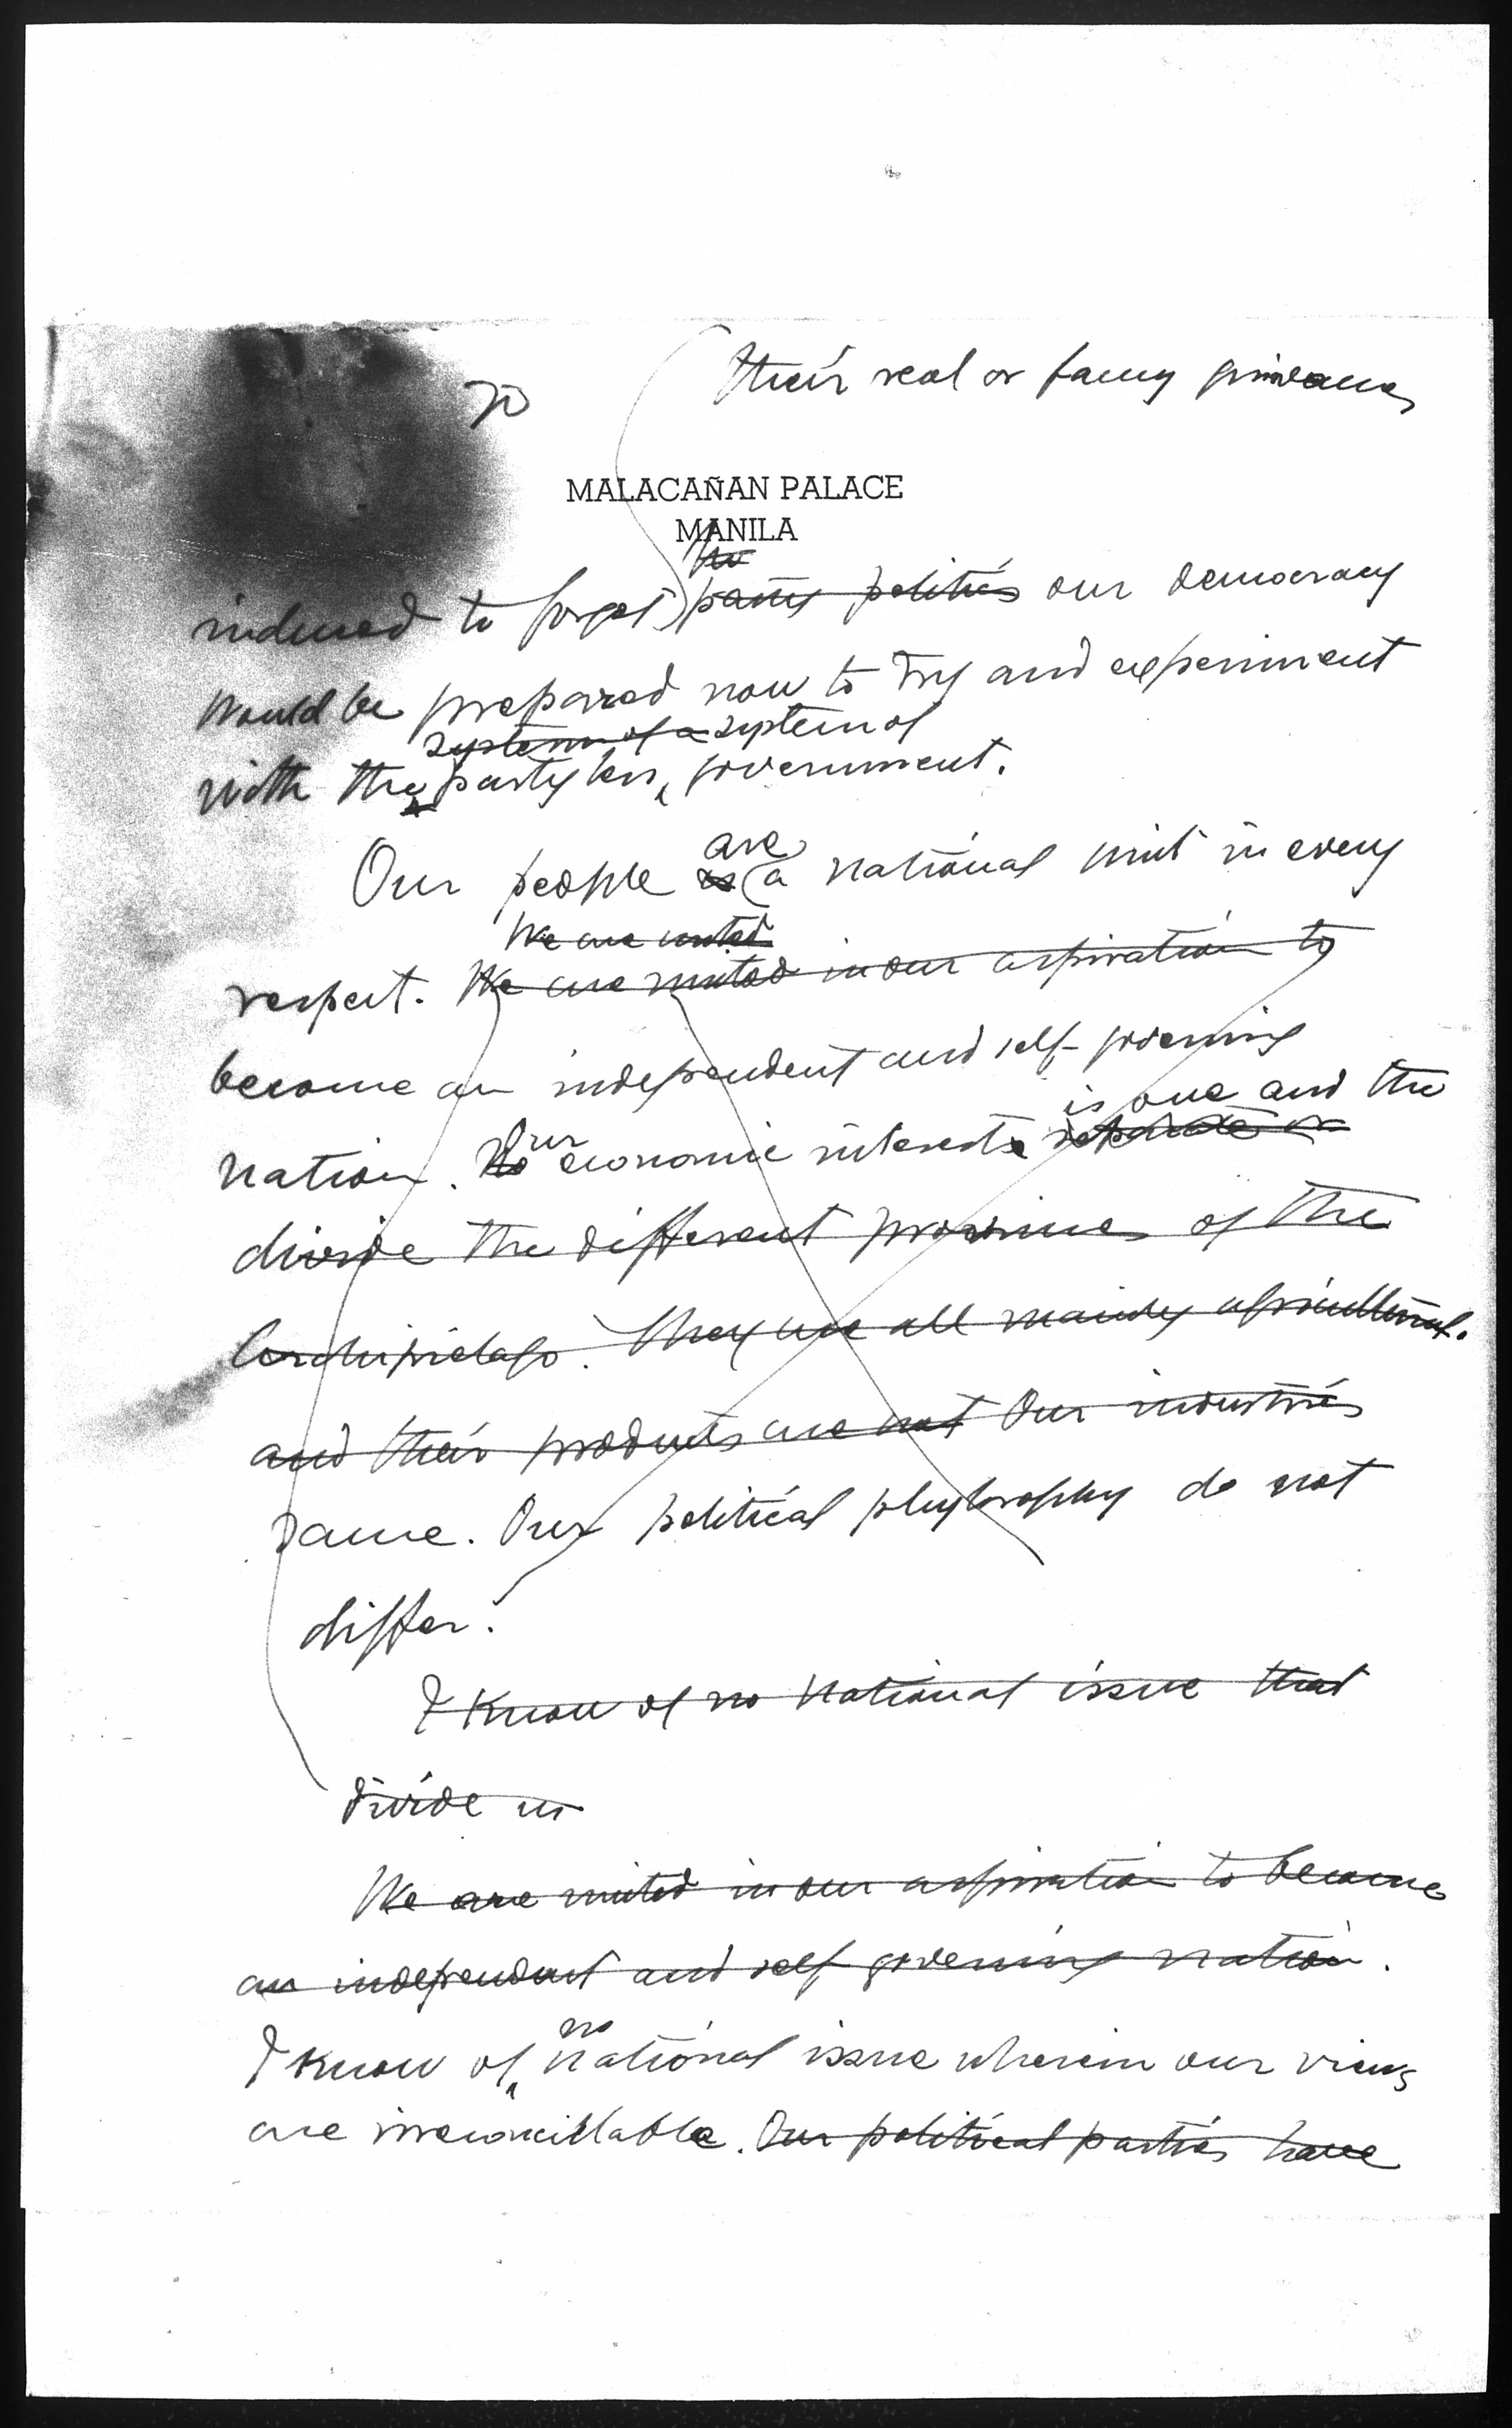 their real or fancy grievances
MALACAÑAN PALACE
MANILA
the
induced to forget party politics our democracy
would be prepared now to try and experiment
system of a system of
with the partyless government.
are
Our people is a national unit in every
We are united
respect. We are united in our aspiration to
become an independent and self-governing
is one and the
Our
nation. No economic interests separate or
divide the different provinces of the
Archipielago. They are all mainly agricultural.
and their products are not Our industries
same. Our political phylosophy do not
differ.
I know of no national issue that
divide us
We are united in our aspiration to become
an independent and self governing nation.
no
I know of national issue wherein our views
are irreconcillable. Our political parties have